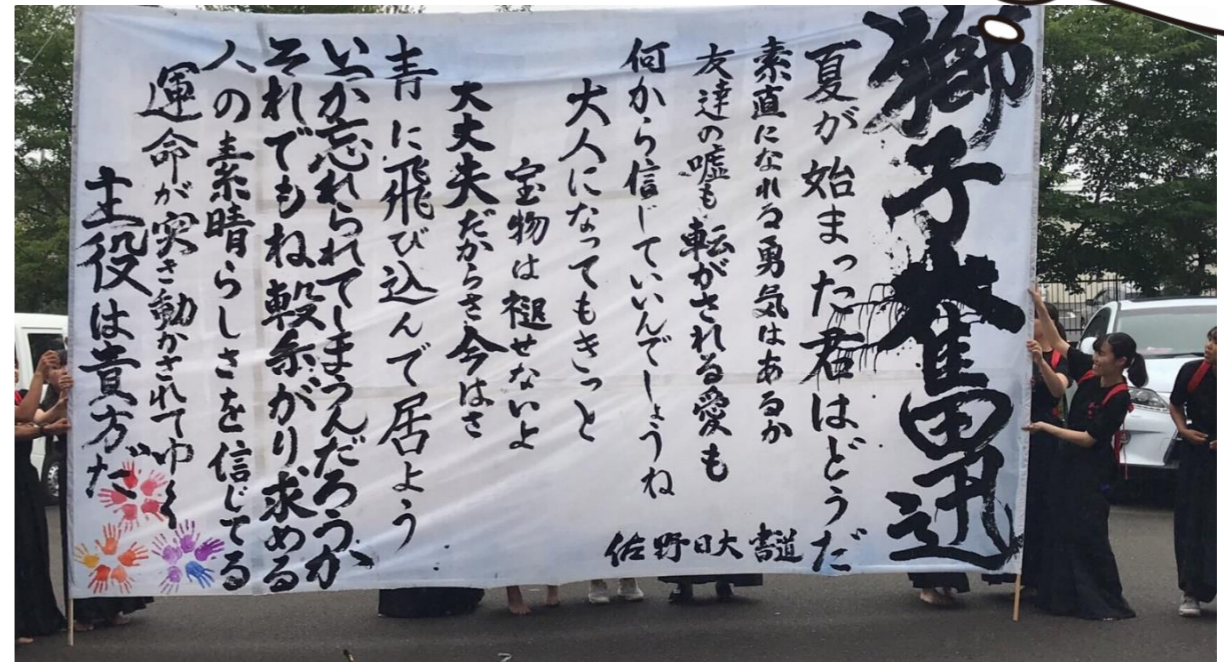 獅子奮迅
夏が始まった君はどうだ
素直になれる勇気はあるか
友達の嘘も転がされる愛も
何から信じていいんでしょうね
大人になってもきっと
宝物は褪せないよ
大丈夫だからさ今はさ
青に飛び込んで居よう
いつか忘れられてしまうんだろうか
それでもね繋がり求める
人の素晴らしさを信じてる
運命が突き動かされてゆく
主役は貴方だ
佐野日大 書道